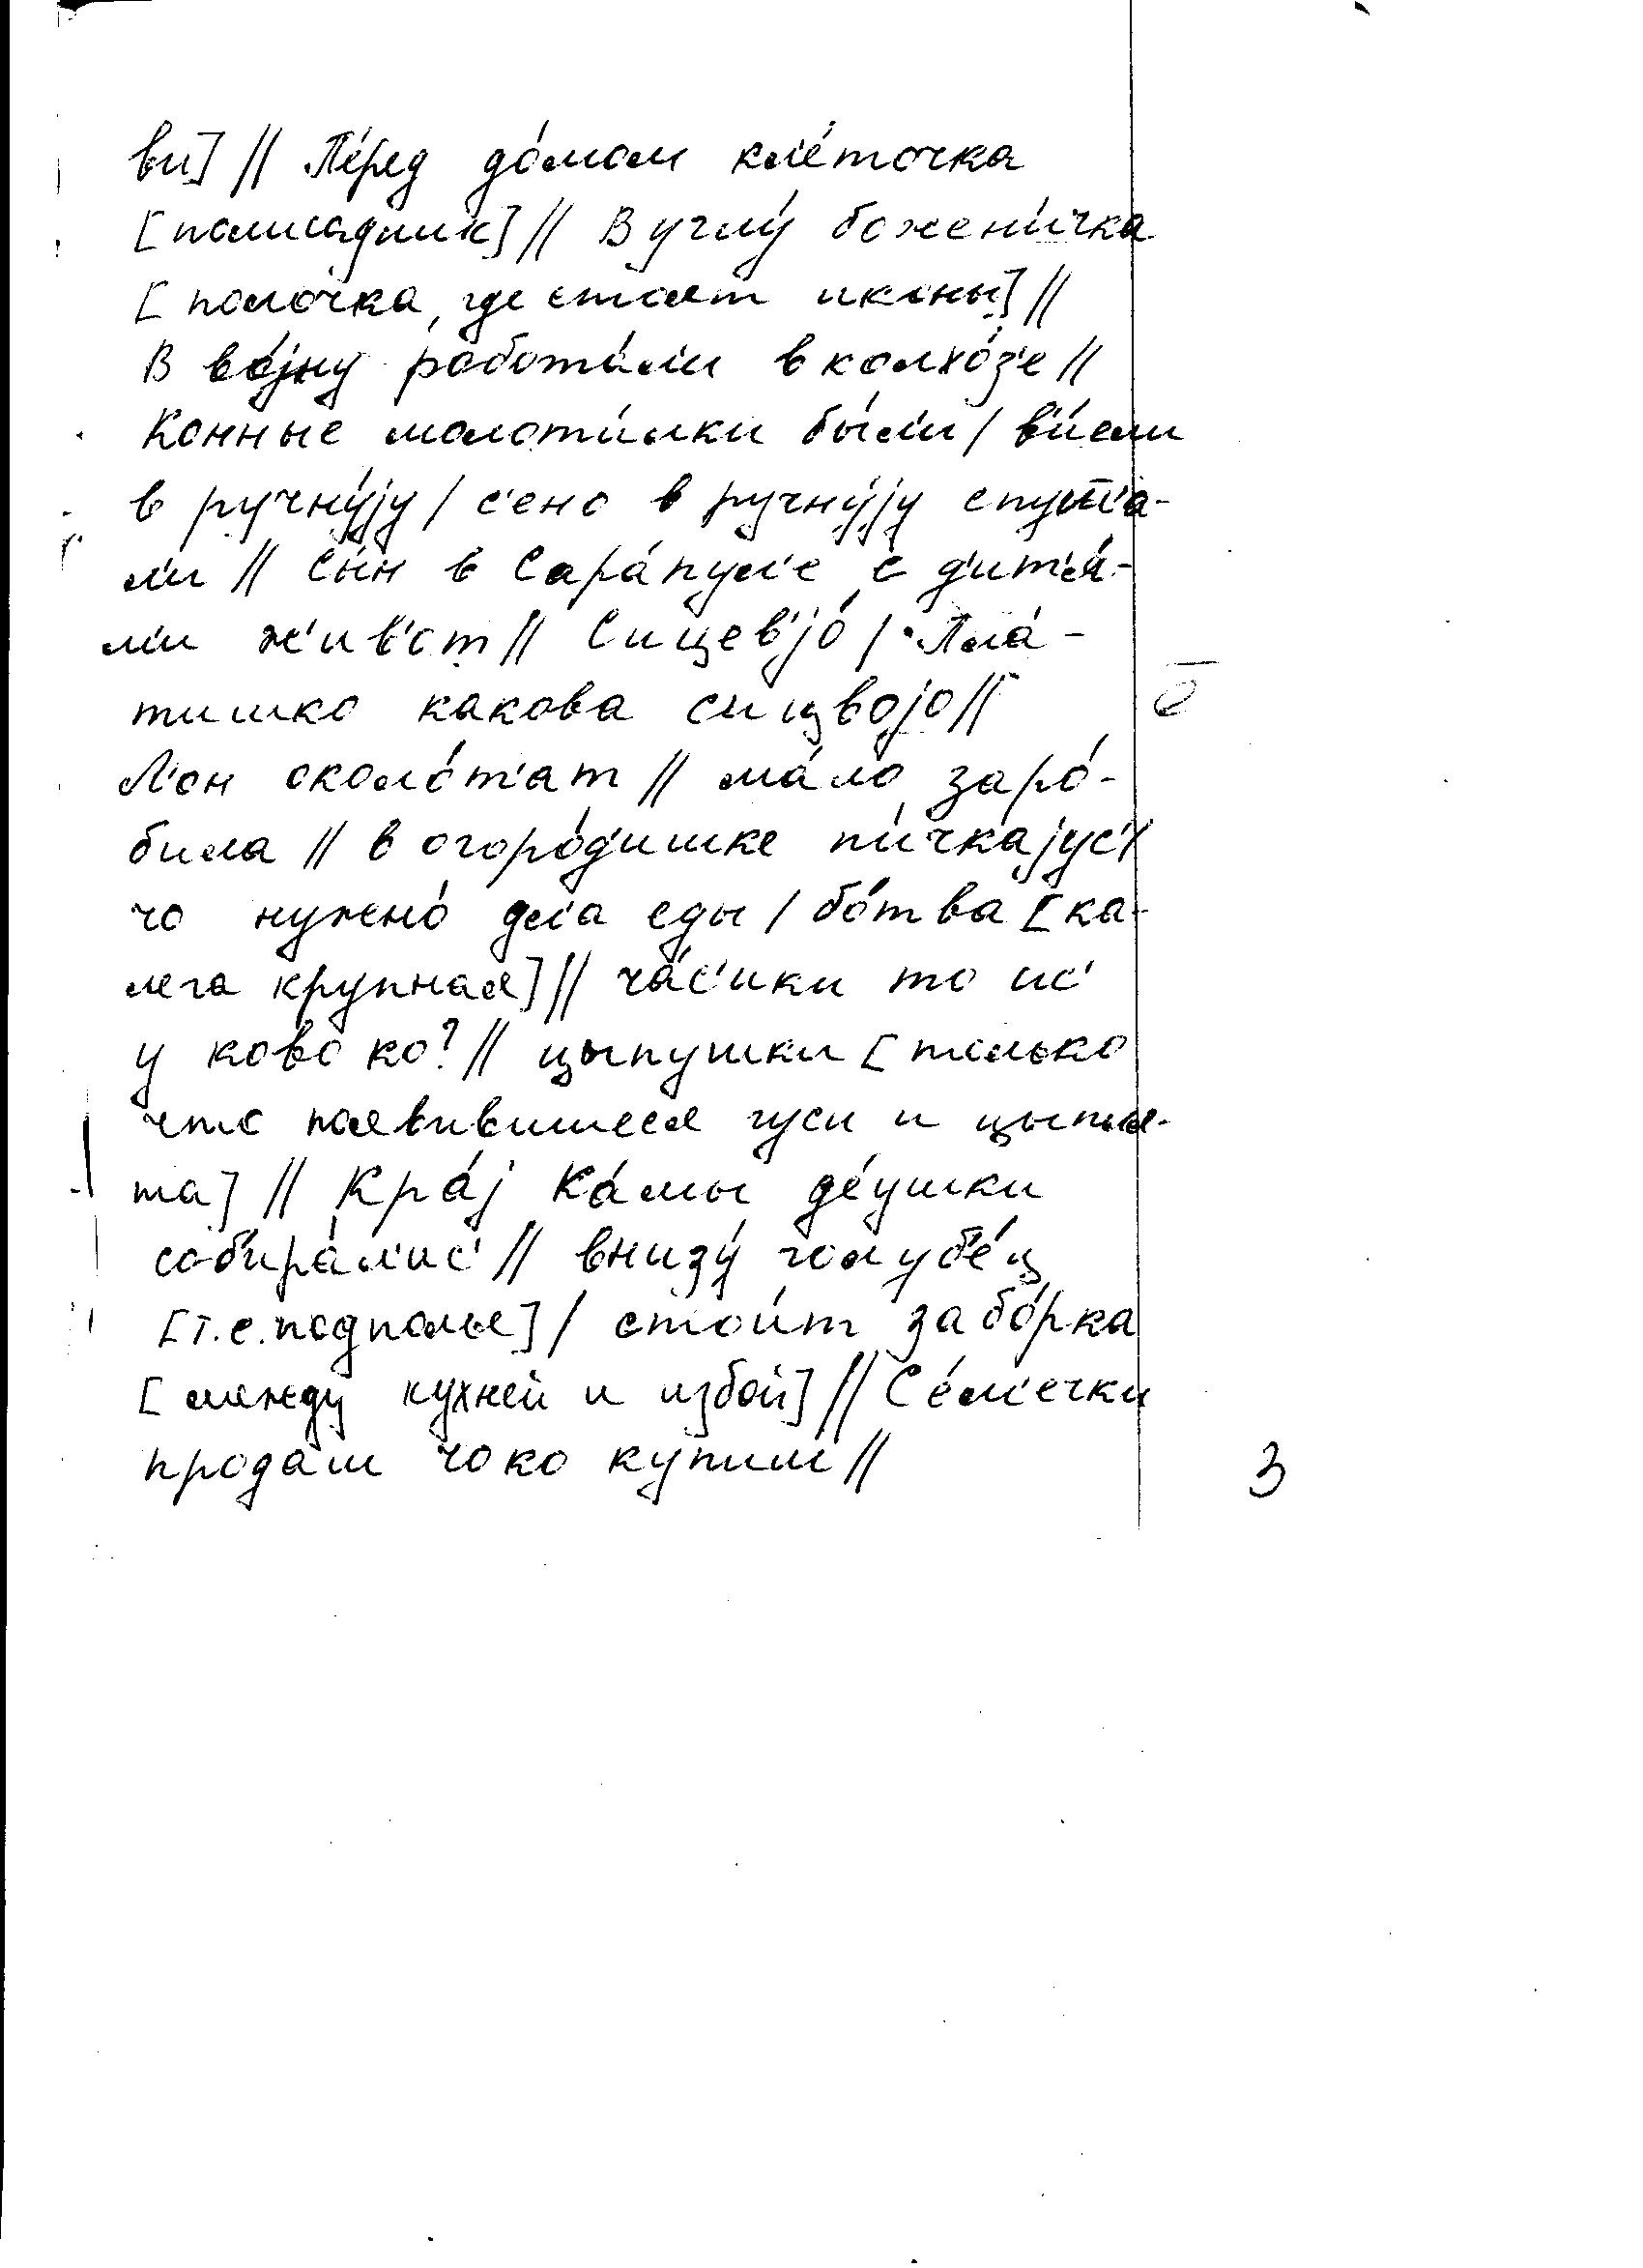 ви] // Пе́ред до́мом кл'е́точка
[полисадник] // В углу́ божени́чка
[полочка, где стоят иконы] //
В во́јну робота́ли в колхо́з'е //
Конные молоти́лки бы́л'и / в'и́ели
в ручну́ју / с'ено в ручну́ју спуш'а-
л'и // Сы́н в Сара́пул'е с д'ит'а́-
м'и ж'ив'от // Сицев'јо́ / Пла́-
тишко какова сицвојо //
Л'он околот'ат // ма́ло заро́-
била // в огоро́д'ишке пи́чкајус' /
чо нужно́ дл'а еды / бо́тва [ка-
лега крупная] // ча́с'ики то ис'
у ково ко? // цыпушки [только
что появившиеся гуси и цыпля-
та] // Кра́ј Ка́мы де́ушки
соб'ира́л'ис' // внизу́ голуб'е́ц
[т.е. подполье] / стои́т забо́рка
[между кухней и избой] // Се́м'ечки
прода́ли чоко купили //
3